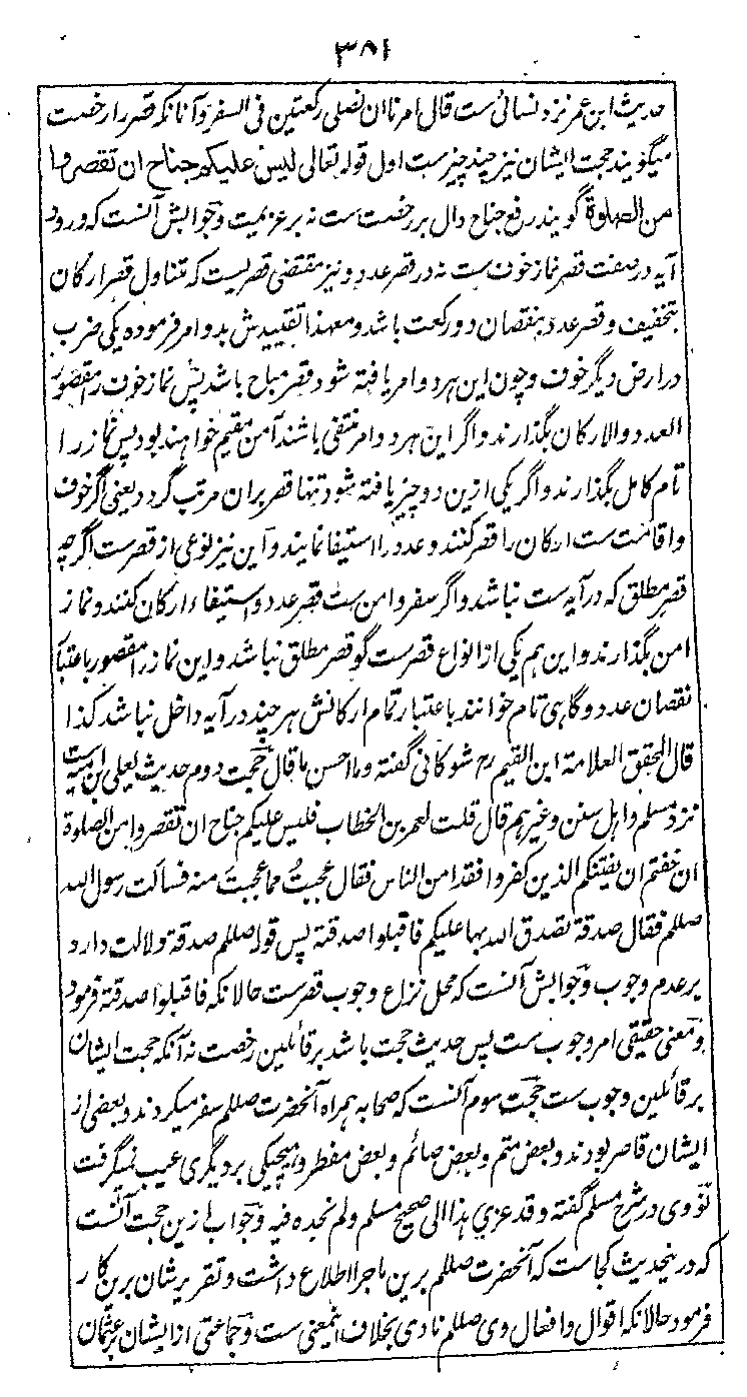 ۳۸۱
حدیث ابن عمر نزد نسائی ست قال امرنا ان نصلی رکعتین فی السفر و آنانکه قصر را رخصت
میگویند حجت ایشان نیز چند چیز ست اول قوله تعالی لیس علیکم جناح ان تقصروا
من الصلوة گویند رفع جناح دال بر رخصت ست نه بر عزیمت و جوابش آنست که ورود
آیه در صفت قصر نماز خوف ست نه در قصر عدد و نیز مقتضی قصریست که متناول قصر ارکان
بتخفیف و قصر عدد بنقصان دو رکعت باشد ومعهذا تقییدش بدو امر فرموده یکی ضرب
در ارض دیگر خوف و چون این هر دو امر یافته شود قصر مباح باشد پس نماز خوف را مقصور
العدد والارکان بگذارند و اگر این هر دو امر منتفی باشند آمن مقیم خواهند بود پس نماز را
تام کامل بگذارند و اگر یکی ازین دو چیز یافته شود تنها قصر بران مرتب گردد یعنی اگر خوف
و اقامت ست ارکان را قصر کنند و عدد را استیفا نمایند و این نیز نوعی از قصرست اگرچه
قصر مطلق که در آیه ست نباشد و اگر سفر و امن ست قصر عدد و استیفاء ارکان کنند و نماز
امن بگذارند و این هم یکی از انواع قصرست گو قصر مطلق نباشد و این نماز را مقصور باعتبار
نقصان عدد و گاهی تام خوانند باعتبار تمام ارکانش هر چند در آیه داخل نباشد کذا
قال المحقق العلامة ابن القیم رح شوکانی گفته وما احسن ما قال حجت دوم حدیث یعلی بن امیه است
نزد مسلم و اهل سنن و غیرهم قال قلت لعمر بن الخطاب فلیس علیکم جناح ان تقصروا من الصلوة
ان خفتم ان یفتنکم الذین کفروا فقد امن الناس فقال عجبتُ مما عجبتَ منه فسألت رسول الله
صللم فقال صدقة تصدق الله بها علیکم فاقبلوا صدقته پس قوله صللم صدقة دلالت دارد
بر عدم وجوب و جوابش آنست که محل نزاع وجوب قصرست حالانکه فاقبلوا صدقته فرمود
و معنی حقیقی امر وجوب ست پس حدیث حجت باشد بر قائلین رخصت نه آنکه حجت ایشان
بر قائلین وجوب ست حجت سوم آنست که صحابه همراه آنحضرت صللم سفر میکردند و بعضی از
ایشان قاصر بودند و بعض متم و بعض صائم و بعض مفطر و هیچیکی بر دیگری عیب نمیگرفت
نووی در شرح مسلم گفته و قد عزي هذا الی صحیح مسلم ولم نجده فیه و جواب ازین حجت آنست
که درینحدیث کجاست که آنحضرت صللم برین ماجرا اطلاع داشت و تقریر شان برین کار
فرمود حالانکه اقوال و افعال وی صللم نادی بخلاف اینمعنی ست و جماعتی از ایشان بر عثمان